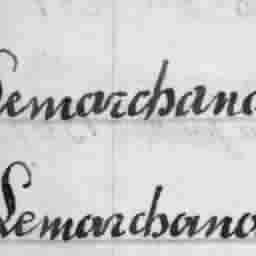 Lemarchand
Lemarchand